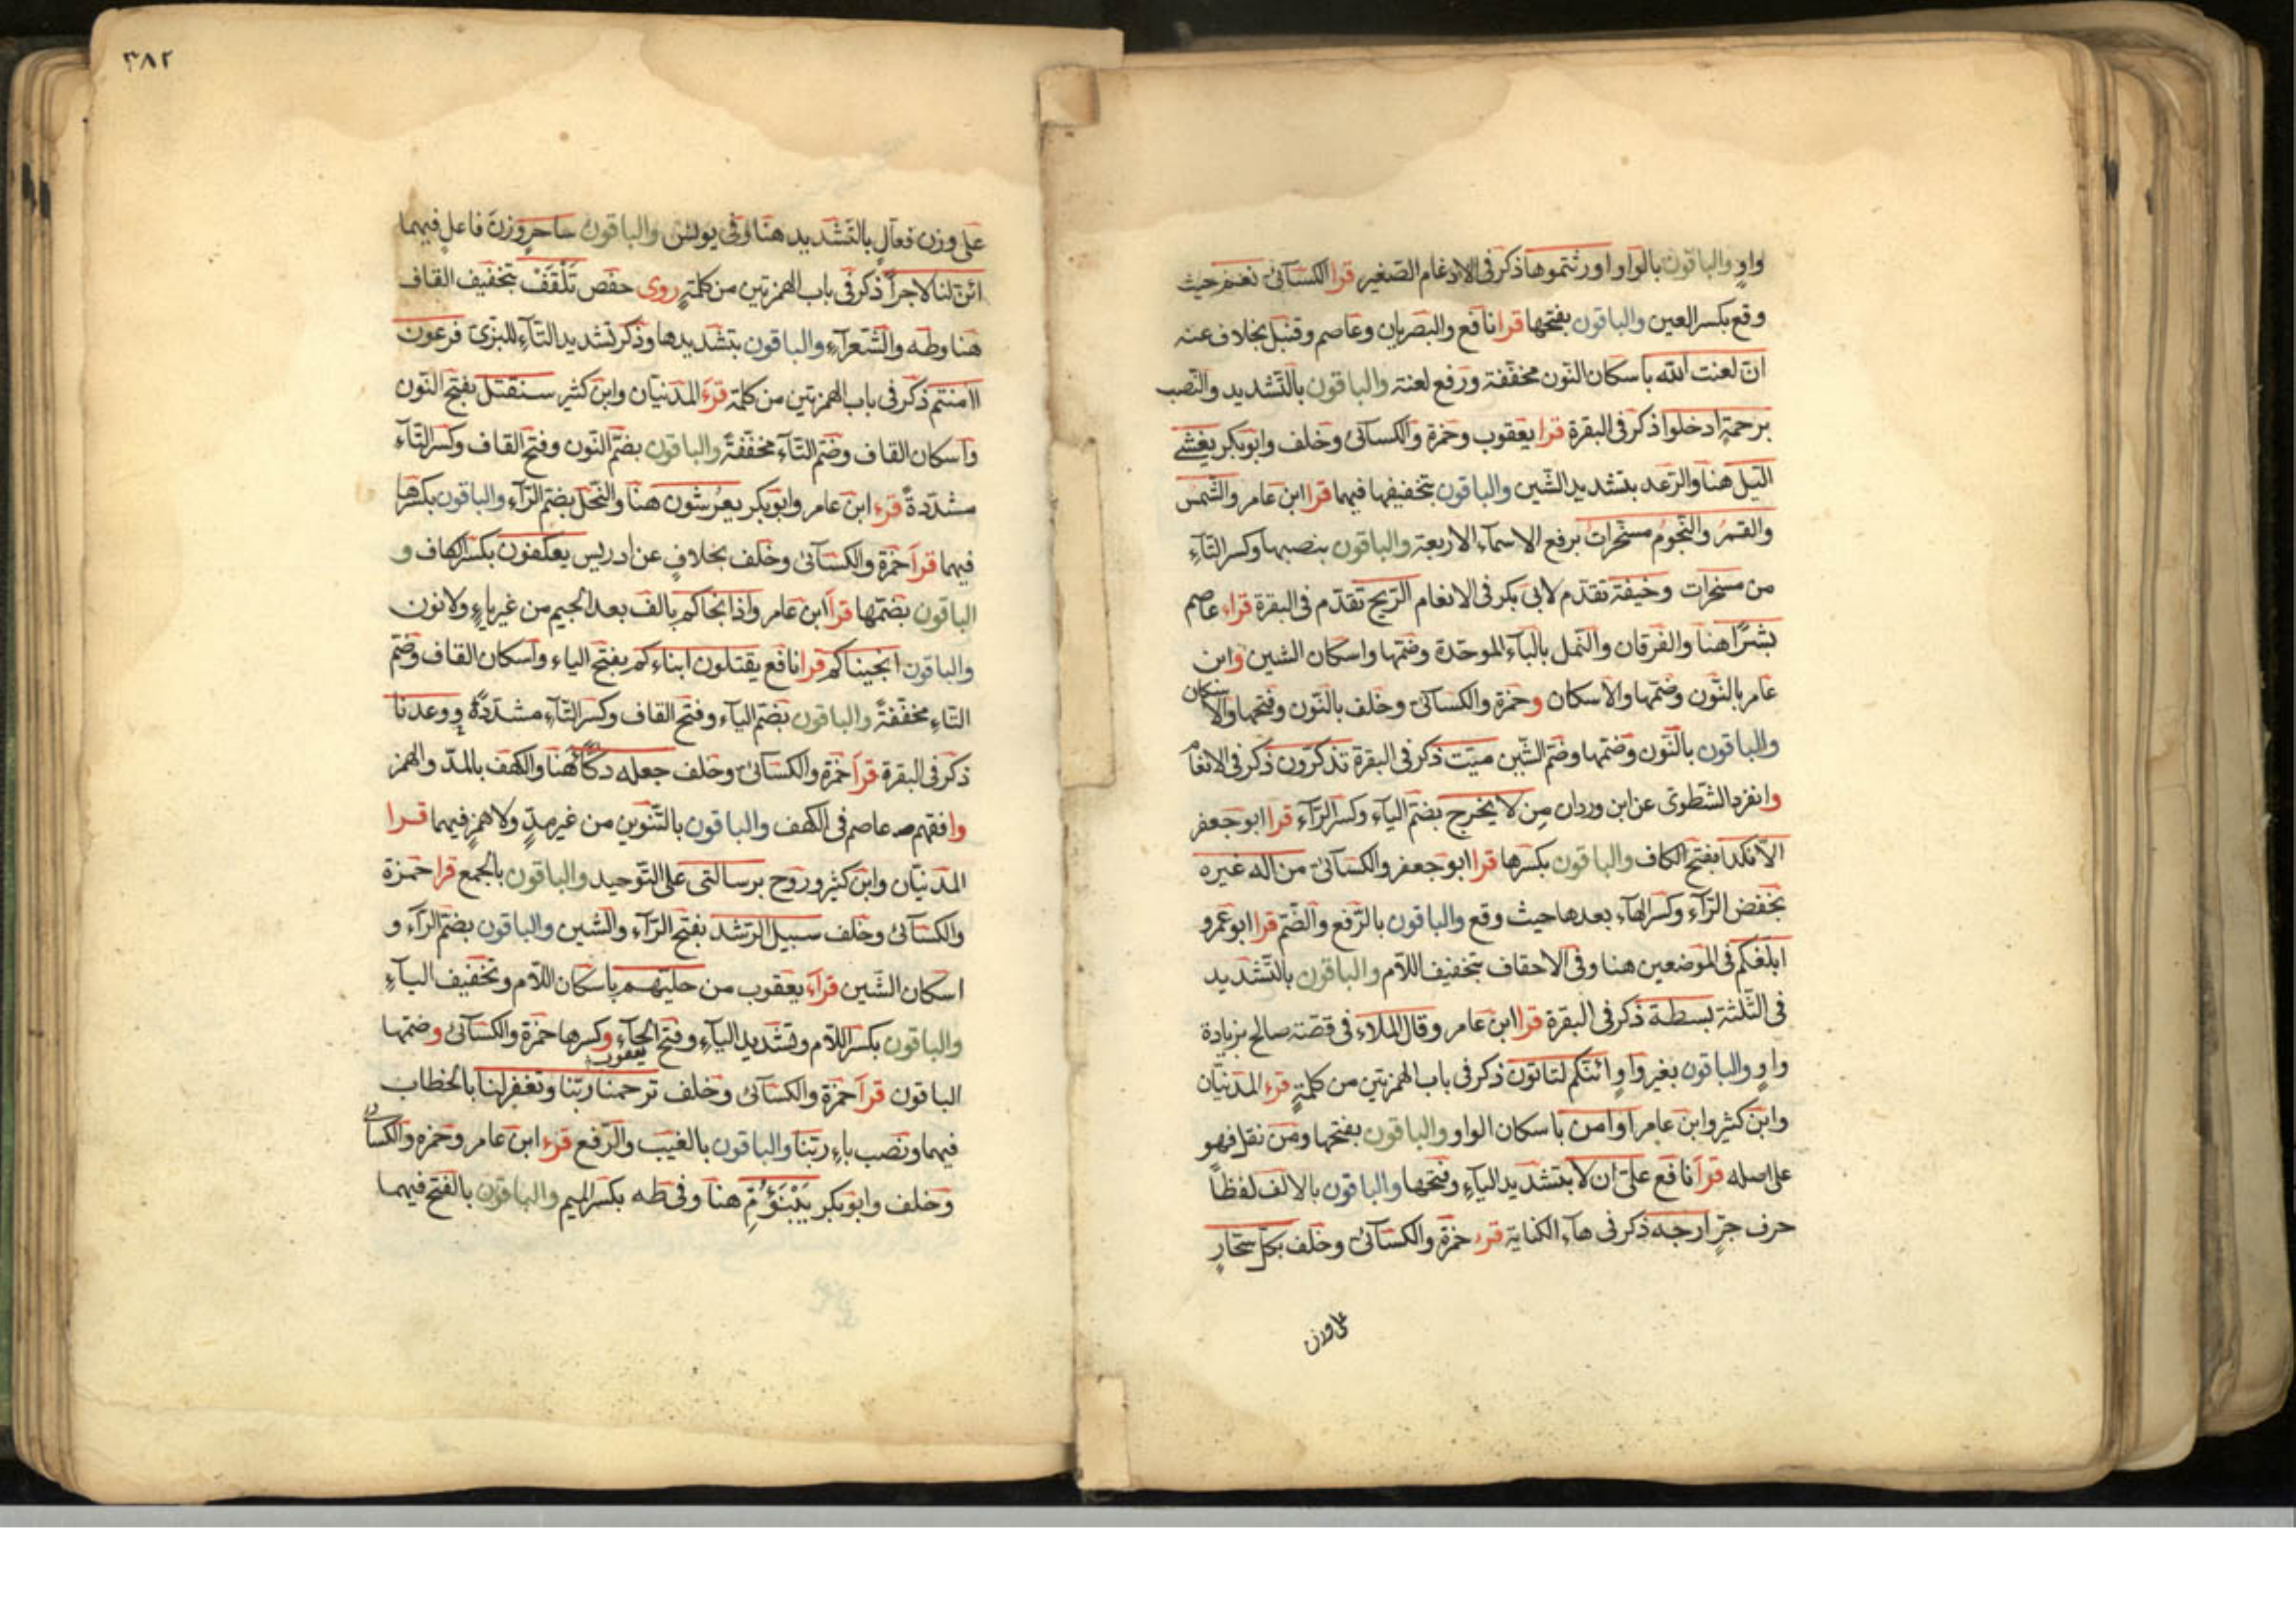 واوٍ والباقون بالواو اورثتموها ذكر فى الادغام الصّغير قرا الكسائى نعم حيث
وقع بكسر العين والباقون بفتحها قرا نافع والبصريان وعاصم وقنبل بخلاف عنه
ان لعنت الله باسكان النون مخففة ورفع لعنة والباقون بالتشديد والنصب
برحمةٍ ادخلوا ذكر فى البقرة قرا يعقوب وحمزة والكسائى وخلف وابوبكر يغشى
الّيل هنا والرّعد بتشديد الشّين والباقون بتخفيفها فيهما قرا ابن عامر والشّمس
والقمرُ والنّجومُ مسخّراتٌ برفع الاسماء الاربعة والباقون بنصبها وكسر التاءِ
من مسخرات وخيفة تقدّم لابى بكر فى الانعام الرّيح تقدّم فى البقرة قراء عاصم
بشرًا هنا والفرقان والنّمل بالباء الموحّدة وضمّها واسكان الشين وابن
عامر بالنّون وضمّها والاسكان وحمزة والكسائى وخلف بالنّون وفتحها والاسكان
والباقون بالنّون وضمّها وضمّ الشّين ميّت ذكر فى البقرة تذكّرون ذكر فى الانعام
وانفرد الشّطوىّ عن ابن وردان مِن لا يخرج بضمّ الياء وكسر الرّاء قرا ابو جعفر
الّا نكدا بفتح الكاف والباقون بكسرها قرا ابو جعفر والكسائى من اله غيره
بخفض الرّاء وكسر الهاء بعدها حيث وقع والباقون بالرّفع والضّم قرا ابو عمرو
ابلغكم فى الموضعين هنا وفى الاحقاف بتخفيف اللّام والباقون بالتّشديد
فى الثّلثة بسطة ذكر فى البقرة قرا ابن عامر وقال الملاء فى قصّة صالح بزيادة
واوٍ والباقون بغير واوٍ ائنّكم لتاتون ذكر فى باب الهمزتين من كلمةٍ قرء المدنيّان
وابن كثير وابن عامر او امن باسكان الواو والباقون بفتحها ومن نقل فهو
على اصله قرأ نافع علىّ ان لا بتشديد الياءِ وفتحها والباقون بالالف لفظاً
حرف جرّ ارجه ذكر فى هاء الكناية قرء حمزة والكسائى وخلف بكلّ سحّارٍ
على وزن
٣٨٢
على وزن فعّالٍ بالتّشديد هنا وفى يونس والباقون ساحرٍ وزن فاعلٍ فيهما
ائنّ لنا لاجراً ذكر فى باب الهمزتين من كلمةٍ روى حفص تَلْقَفْ بتخفيف القاف
هنا وطه والشّعراءِ والباقون بتشديدها وذكر تشديد التّاءِ للبزىّ فرعون
اامنتم ذكر فى باب الهمزتين من كلمة قرء المدنيّان وابن كثير سنقتل بفتح النّون
واسكان القاف وضمّ التّاء مخفّفةً والباقون بضمّ النّون وفتح القاف وكسر التّاء
مشدّدةً قرء ابن عامر وابوبكر يعرُشون هنا والنّحل بضمّ الرّاء والباقون بكسرها
فيهما قرأ حمزة والكسائى وخلف بخلافٍ عن ادريس يعكفون بكسر الكاف و
الباقون بضمّها قرأ ابن عامر واذ انجاكم بالف بعد الجيم من غير ياءٍ ولا نون
والباقون انجيناكم قرا نافع يقتلون ابناءكم بفتح الياء واسكان القاف وضمّ
التّاءِ مخفّفةً والباقون بضمّ الياء وفتح القاف وكسر التّاء مشدّدةً ووعدنا
ذكر فى البقرة قرأ حمزة والكسائى وخلف جعله دكّاء هنا والكهف بالمدّ والهمز
وافقهم عاصم فى الكهف والباقون بالتّنوين من غير مدٍّ ولا همزٍ فيهما قرا
المدنيّان وابن كثير وروح برسالتى على التّوحيد والباقون بالجمع قرا حمزة
والكسائى وخلف سبيل الرّشد بفتح الرّاء والشّين والباقون بضمّ الرّاء و
اسكان الشّين قرأ يعقوب من حليهم باسكان اللّام وتخفيف الياءِ
والباقون بكسر اللّام وتشديد الياءِ وفتح الحاء يعقوب وكسرها حمزة والكسائى وضمّها
الباقون قرأ حمزة والكسائى وخلف ترحمنا ربّنا وتغفر لنا بالخطاب
فيهما ونصب باءِ ربّنا والباقون بالغيب والرّفع قرء ابن عامر وحمزه والكسائى
وخلف وابوبكر يَبْنَؤُمِّ هنا وفى طه بكسر الميم والباقون بالفتح فيهما